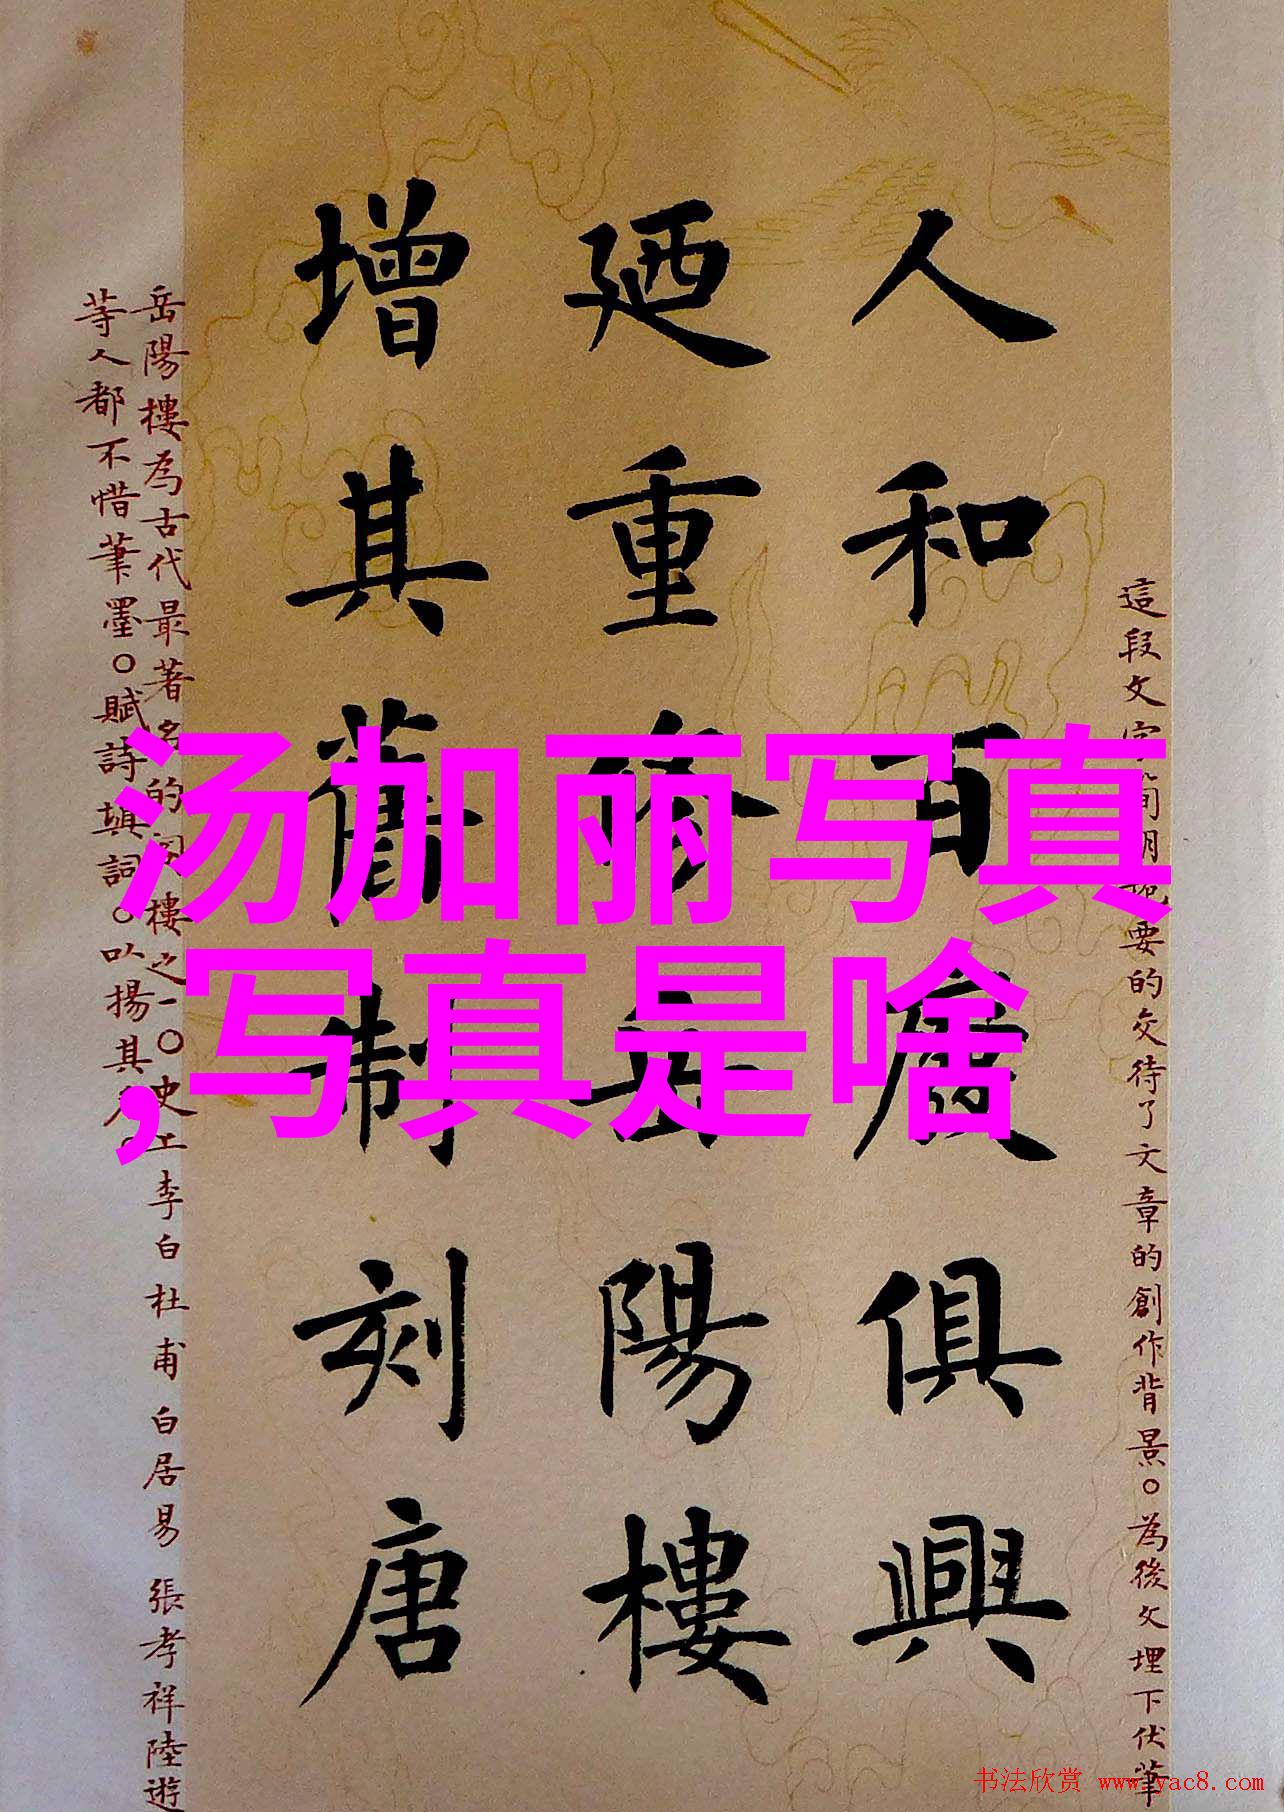 這段文字簡明扼要的交待了文章的創作背景。為後文埋下伏筆
人和百廢俱興
廼重修岳陽樓
增其舊制刻唐
岳陽樓為古代最著名的閣樓之一。史上李白杜甫白居易張孝祥陸遊
等人都不惜筆墨。賦詩填詞。以揚其名
汤加丽写真
,写真是啥
书法欣赏 www.yac8.com